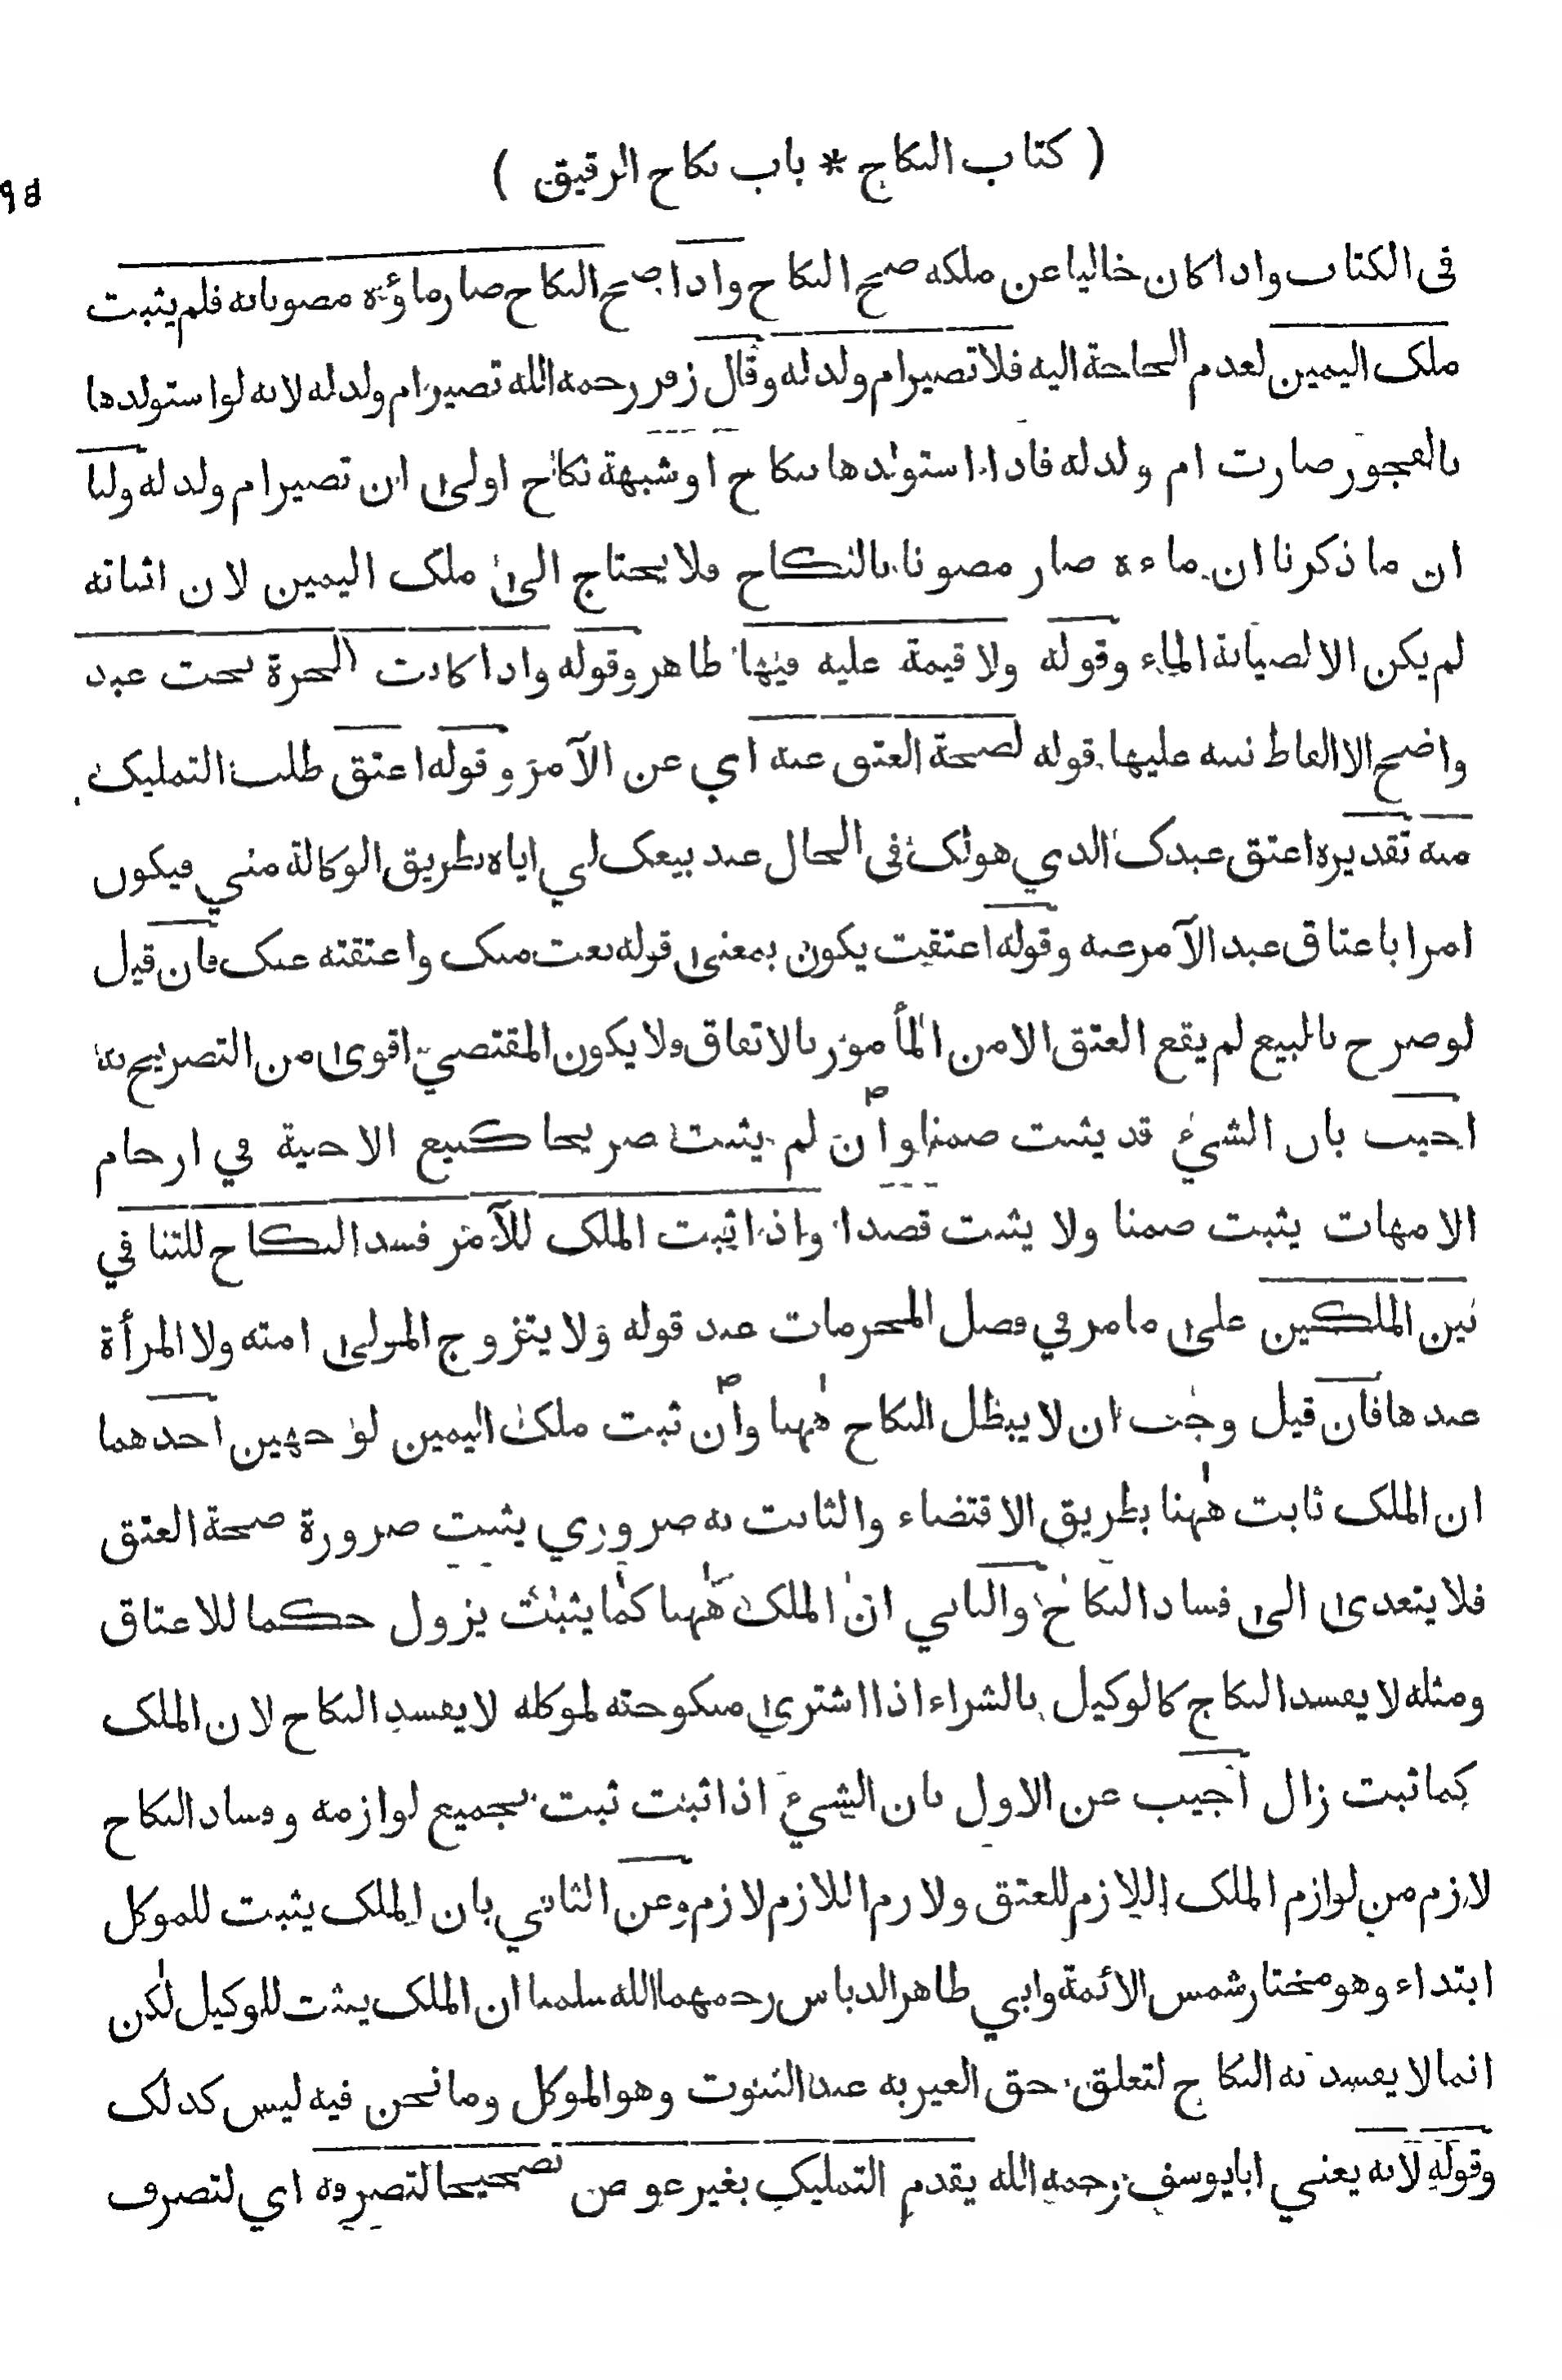 ( كتاب النكاح * باب نكاح الرقيق )
في الكتاب واذا كان خاليا عن ملكه صح النكاح واذا صح النكاح صار ماؤه مصونا به فلم يثبت
ملك اليمين لعدم الحاجة اليه فلا تصير ام ولد له وقال زفر رحمه الله تصير ام ولد له لانه لو استولدها
بالفجور صارت ام ولد له فاذا استولدها بنكاح او شبهة نكاح اولى ان تصير ام ولد له ولنا
ان ما ذكرنا ان ماءه صار مصونا بالنكاح ولا يحتاج الى ملك اليمين لان اثباته
لم يكن الا لصيانة الماء وقوله ولا قيمة عليه فيها ظاهر وقوله واذا كانت الحرة تحت عبد
واضح الا الفاظ ننبه عليها قوله لصحة العتق عنه اي عن الآمر وقوله اعتق طلب التمليك
منه تقديره اعتق عبدك الذي هو لك في الحال عند بيعك لي اياه بطريق الوكالة مني فيكون
امرا باعتاق عبد الآمر عنه وقوله اعتقت يكون بمعنى قوله بعت منك واعتقته عنك فان قيل
لو صرح بالبيع لم يقع العتق الا من المأمور بالاتفاق ولا يكون المقتضي اقوى من التصريح به
اجيب بان الشيء قد يثبت ضمنا وان لم يثبت صريحا كبيع الاجنة في ارحام
الامهات يثبت ضمنا ولا يثبت قصدا واذا ثبت الملك للآمر فسد النكاح للتنافي
بين الملكين على ما مر في فصل المحرمات عند قوله ولا يتزوج المولى امته ولا المرأة
عبدها فان قيل وجب ان لا يبطل النكاح ههنا وان ثبت ملك اليمين لوجهين احدهما
ان الملك ثابت ههنا بطريق الاقتضاء والثابت به ضروري يثبت ضرورة صحة العتق
فلا يتعدى الى فساد النكاح والثاني ان الملك ههنا كما يثبت يزول حكما للاعتاق
ومثله لا يفسد النكاح كالوكيل بالشراء اذا اشترى منكوحته لموكله لا يفسد النكاح لان الملك
كما ثبت زال اجيب عن الاول بان الشيء اذا ثبت ثبت بجميع لوازمه وفساد النكاح
لازم من لوازم الملك اللازم للعتق ولازم اللازم لازم وعن الثاني بان الملك يثبت للموكل
ابتداء وهو مختار شمس الائمة وابي طاهر الدباس رحمهما الله سلمنا ان الملك يثبت للوكيل لكن
انما لا يفسد به النكاح لتعلق حق الغير به عند الثبوت وهو الموكل وما نحن فيه ليس كذلك
وقوله لانه يعني ابا يوسف رحمه الله يقدم التمليك بغير عوض تصحيحا لتصرفه اي لتصرف